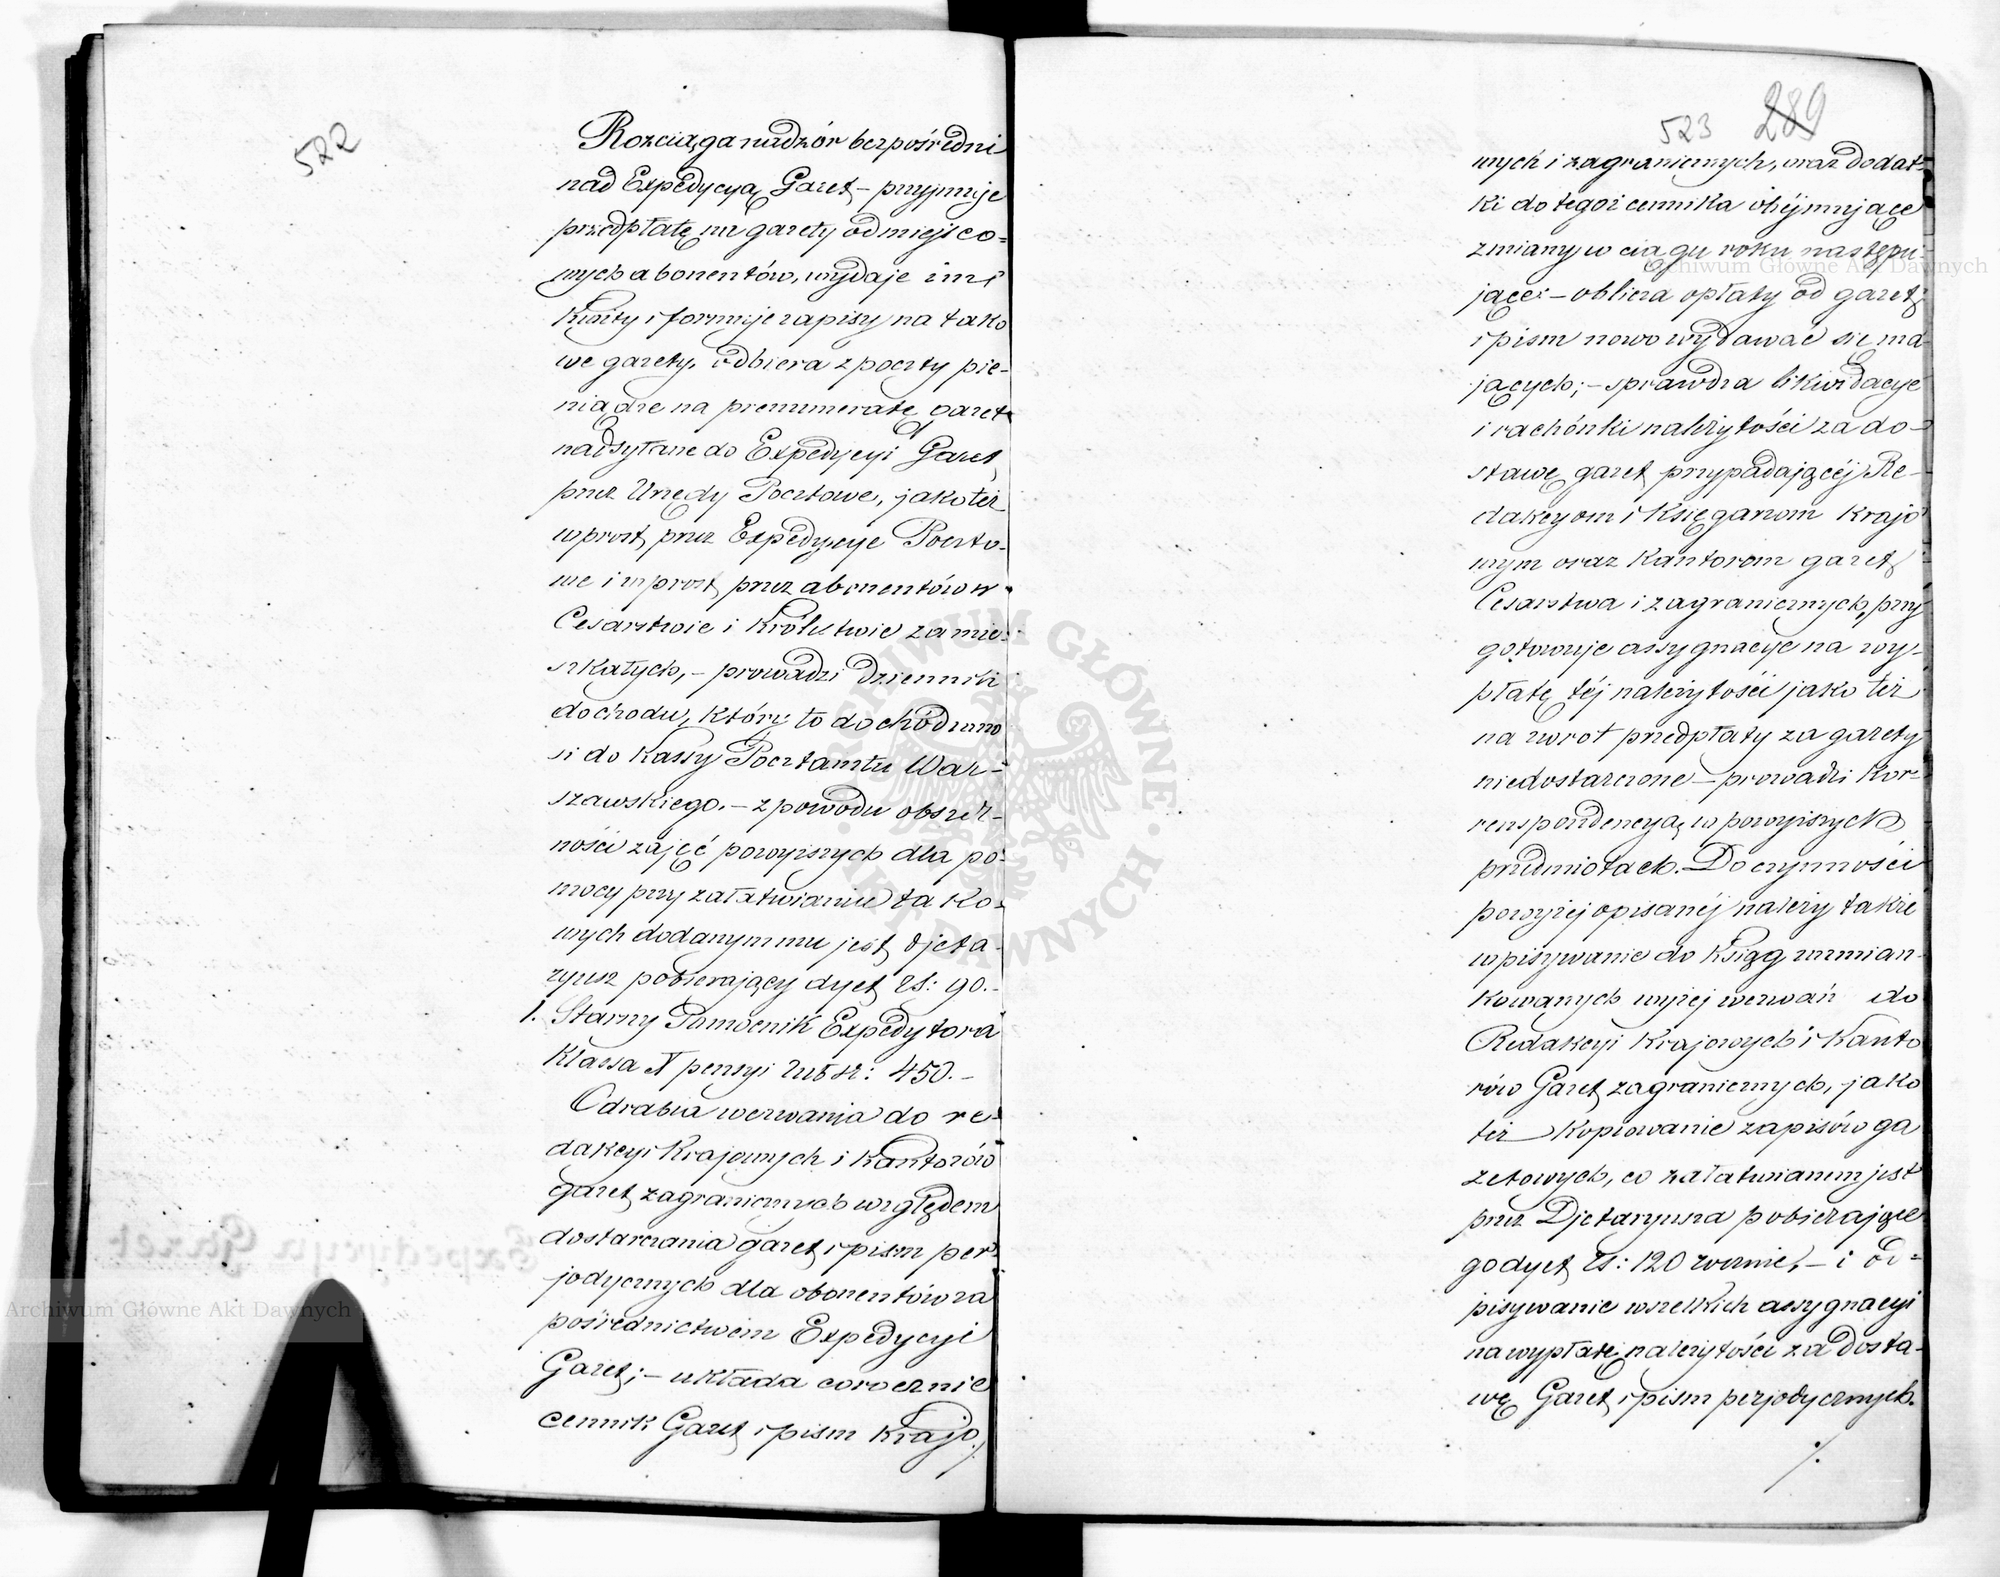 522
Rozciąga nadzór bezpośredni
nad Expedycyą Gazet – przyjmuje
przedpłatę na gazety od miejsco-
wych abonentów, wydaje im
kwity i formuje zapisy na tako
we gazety, odbiera z poczty pie-
niądze na prenumeratę gazet
nadsyłane do Expedycyi Gazet
przez Urzędy Pocztowe, jako też
wprost przez Expedycye Poczto-
we i wprost przez abonentów w
Cesarstwie i Królestwie zamie-
szkałych, – prowadzi dziennik
dochodu, który to dochód wno
si do Kassy Pocztamtu War-
szawskiego. – z powodu obszer-
ności zajęć powyższych dla po-
mocy przy załatwianiu tako-
wych dodanym mu jest djeta-
ryusz pobierający dyet rs: 90. –
1. Starszy Pomocnik Expedytora
Klassa X pensyi rub sr: 450. –
Odrabia wezwania do re-
dakcyi Krajowych i Kantorów
gazet zagranicznych względem
dostarczania gazet i pism per-
jodycznych dla abonentów za
pośrednictwem Expedycyi
Gazet; – układa corocznie
cennik Gazet i pism krajo
./.
523 289
wych i zagranicznych, oraz dodat-
ki do tegoż cennika obejmujące
zmiany w ciągu roku następu-
jące: – oblicza opłaty od gazet
i pism nowo wydawać się ma-
jących; – sprawdza likwidacye
i rachónki należytości za do-
stawę gazet przypadającéj Re-
dakcyom i Księgarniom krajo
wym oraz Kantorom gazet
Cesarstwa i zagranicznych, przy
gotowuje assygnacye na wy-
płatę téj należytości jako też
na zwrot przedpłaty za gazety
niedostarczone – prowadzi kor-
respondencyą w powyższych
przedmiotach. Do czynności
powyżej opisanéj należy także
wpisywanie do Ksiąg wzmian-
kowanych wyżej wezwań do
Redakcyi Krajowych i Kanto
rów Gazet zagranicznych, jako
też kopiowanie zapisów ga
zetowych, co załatwianem jest
przez Djetaryusza pobierające
go dyet rs: 120 rocznie, – i od-
pisywanie wszelkich assygnacyi
na wypłatę należytości za dosta-
wę Gazet i pism perjodycznych.
./.
Archiwum Główne Akt Dawnych
Archiwum Główne Akt Dawnych
ARCHIWUM GŁÓWNE AKT DAWNYCH